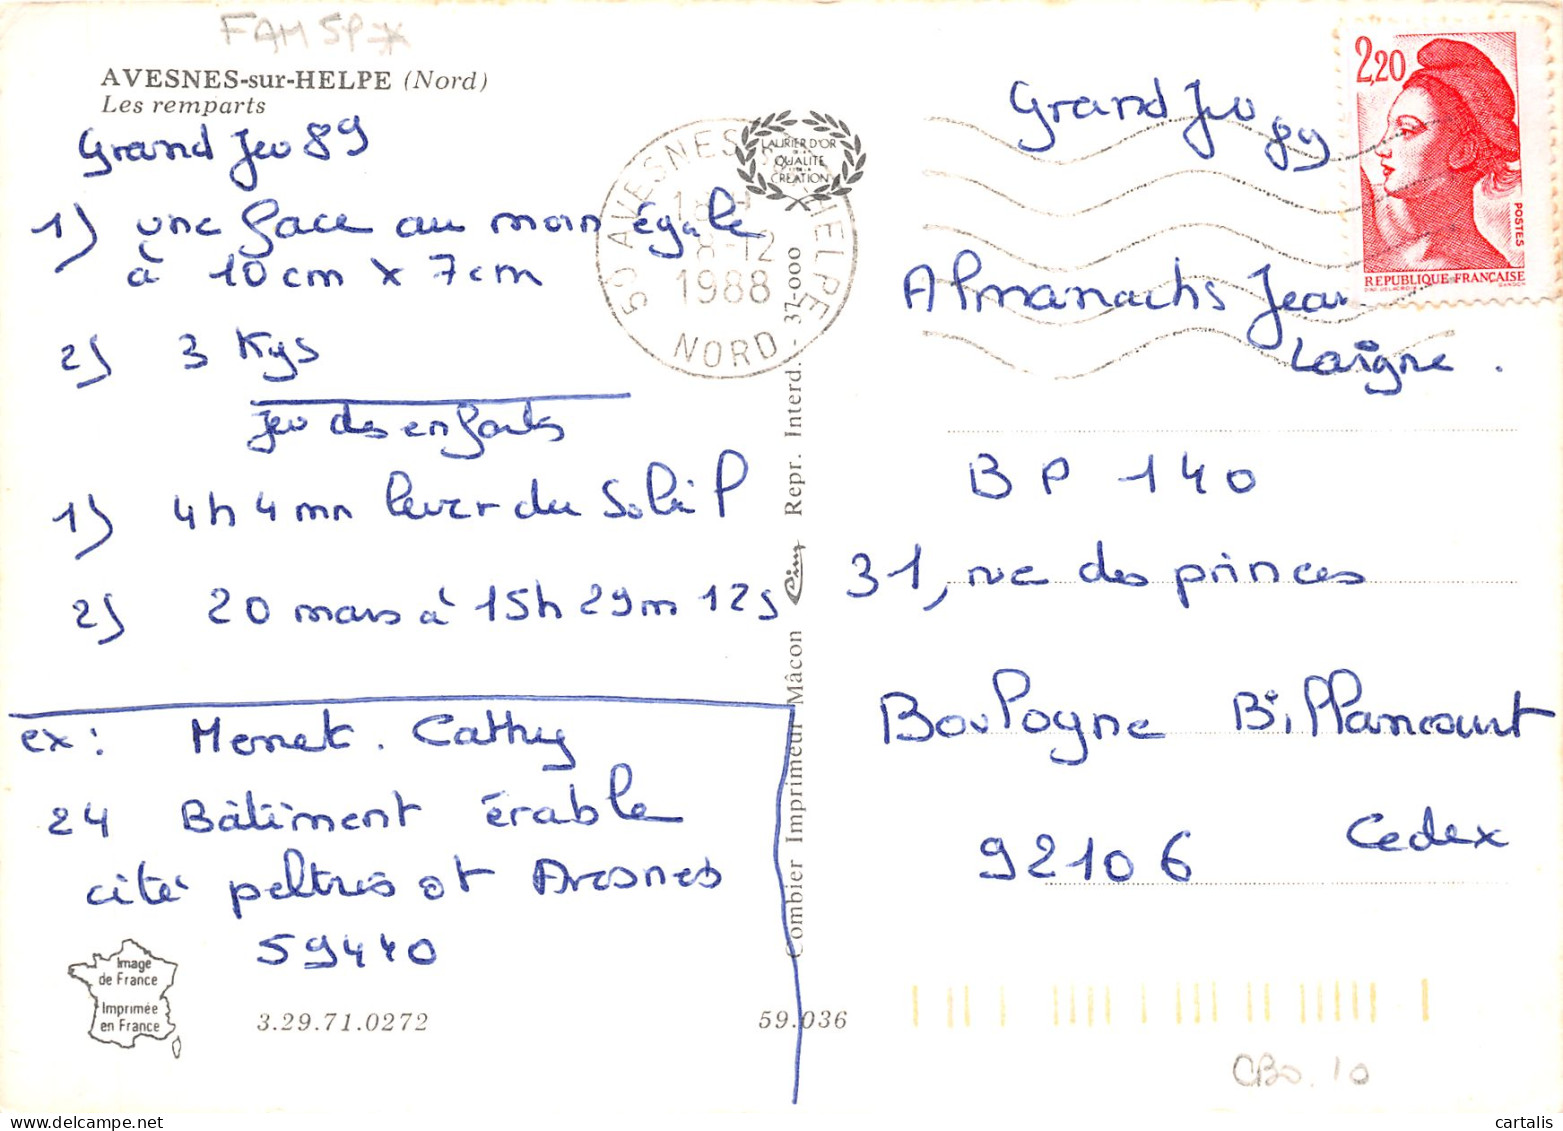 FAM 59*
AVESNES-sur-HELPE (Nord)
Les remparts
Grand Jeu 89
1) une face au moin égale
à 10 cm x 7 cm
2) 3 Kgs
Jeu des enfants
1) 4h 4mn lever du Soleil
2) 20 mars à 15h 29m 12s
ex: Menet. Cathy
24 Bâtiment érable
cité peltrisot Avesnes
59440
Image
de France
Imprimée
en France
3.29.71.0272
59.036
59 AVESNES SUR HELPE
18H
8-12
1988
NORD
LAURIER D'OR
DE LA
QUALITE
CREATION
Combier Imprimeur Mâcon Cim Repr. Interd. - 37-000
Grand Jeu 89
2,20
POSTES
REPUBLIQUE FRANÇAISE
Almanachs Jean
Laigne.
BP 140
31, rue des princes
Boulogne Billancourt
92106 Cedex
CBO. 10
cartalis